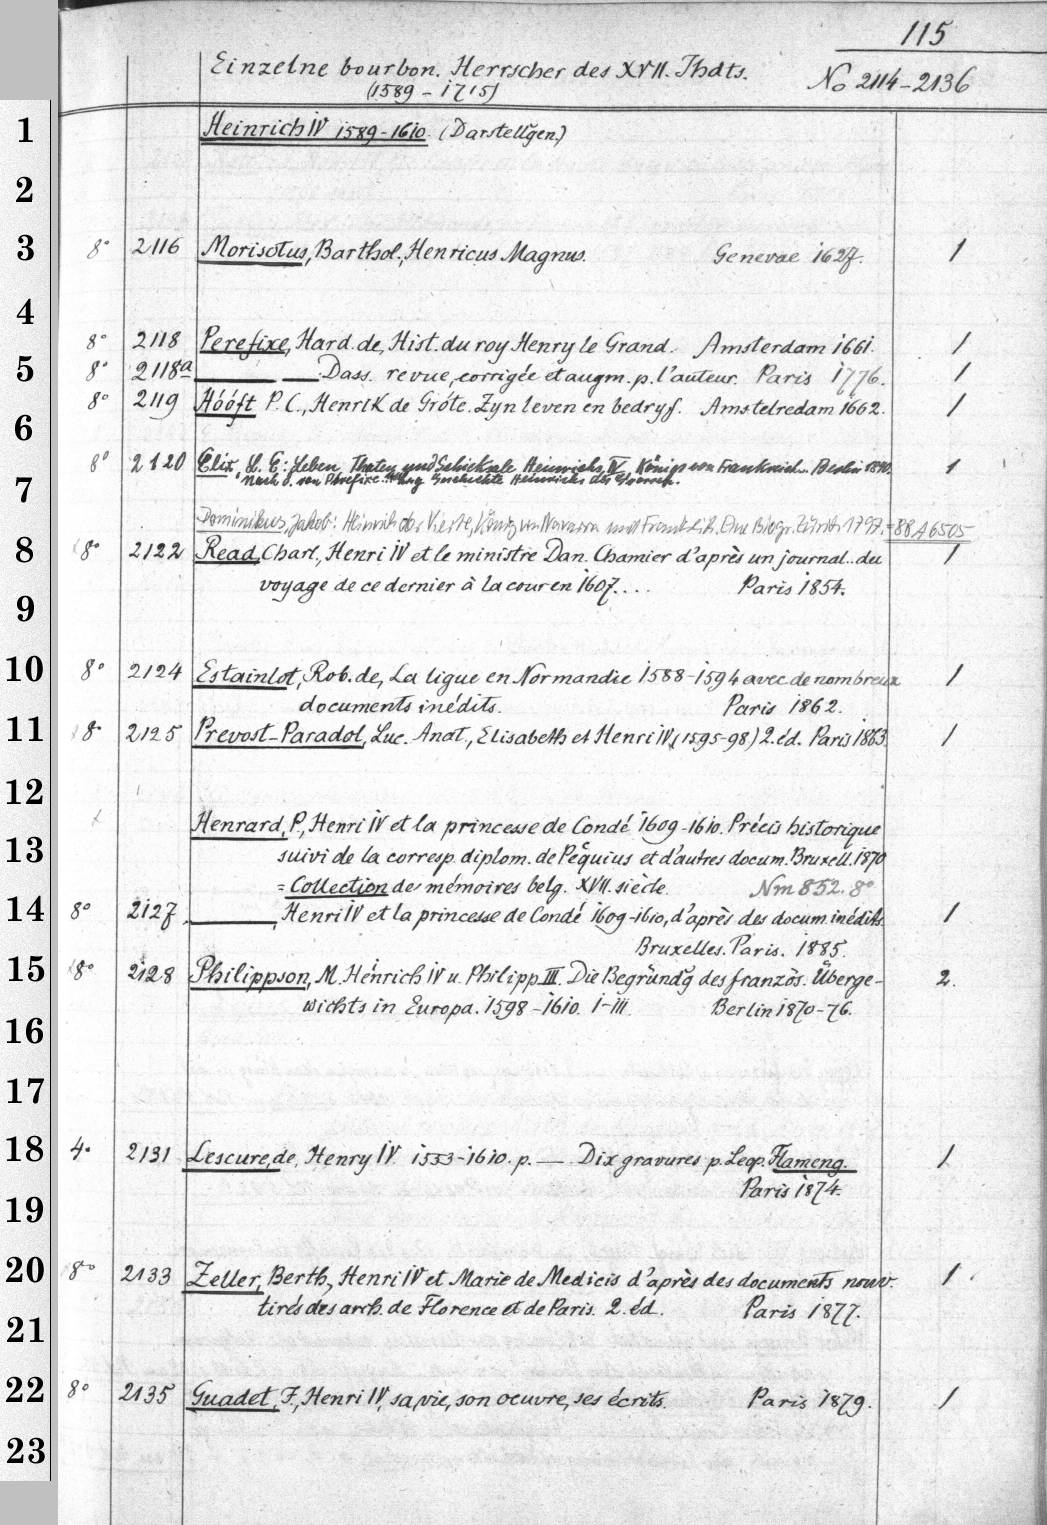 115
Einzelne bourbon. Herrscher des XVII. Jhdts.
(1589 - 1715)
No 2114-2136
1 Heinrich IV 1589-1610. (Darstellgen.)
2
3 8° 2116 Morisotus, Barthol., Henricus Magnus. Genevae 1627. 1
4
8° 2118 Perefixe, Hard. de, Hist. du roy Henry le Grand. Amsterdam 1661. 1
5 8° 2118a ——— —— Dass. revue, corrigée et augm. p. l'auteur. Paris 1776. 1
8° 2119 Hóóft P. C., Henrik de Gróte. Zyn leven en bedryf. Amstelredam 1662. 1
6
8° 2120 Elix, L. E: Leben, Thaten und Schicksale Heinrichs IV, Königs von Frankreich.. Berlin 1840. 1
7 Nach d. von Perefixe Geschichte Heinrichs des Grossen.
Dominikus, Jakob: Heinrich der Vierte, König von Navarra und Frankreich. Eine Biogr. Zürich 1797. = 88 A 6505
8 8° 2122 Read, Charl., Henri IV et le ministre Dan. Chamier d'après un journal.. du 1
voyage de ce dernier à la cour en 1607.... Paris 1854.
9
10 8° 2124 Estainlot, Rob. de, La ligue en Normandie 1588-1594 avec de nombreux 1
documents inédits. Paris 1862.
11 8° 2125 Prevost-Paradol, Luc. Anat., Elisabeth et Henri IV (1595-98) 2. éd. Paris 1863. 1
12
Henrard, P., Henri IV et la princesse de Condé 1609-1610. Précis historique
13 suivi de la corresp. diplom. de Pecquius et d'autres docum. Bruxell. 1870
= Collection de mémoires belg. XVII. siècle. Nm 852. 8°
14 8° 2127 ———, Henri IV et la princesse de Condé 1609-1610, d'après des docum. inédits. 1
Bruxelles. Paris. 1885.
15 8° 2128 Philippson, M. Heinrich IV u. Philipp III. Die Begründg des französ. Überge- 2.
wichts in Europa. 1598-1610. I-III. Berlin 1870-76.
16
17
18 4° 2131 Lescure, de, Henry IV. 1553-1610. p. — Dix gravures p. Leop. Flameng. 1
Paris 1874.
19
20 8° 2133 Zeller, Berth., Henri IV et Marie de Medicis d'après des documents nouv. 1
tirés des arch. de Florence et de Paris. 2. éd. Paris 1877.
21
22 8° 2135 Guadet, F., Henri IV, sa vie, son oeuvre, ses écrits. Paris 1879. 1
23